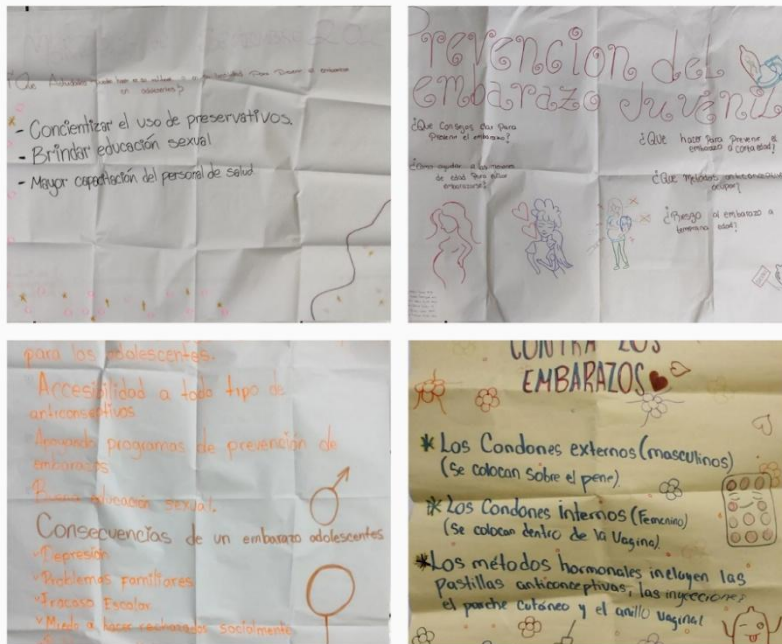 ¿Que Actividades
en adolecentes?
- Concientizar el uso de preservativos.
- Brindar educación sexual
- Mayor capacitación del personal de salud
Prevencion del
embarazo Juvenil
¿Que Consejos das Para
Prevenir el embarazo?
¿Como ayudar a los menores
de edad Para evitar
embarazarse?
¿Que hacer Para Prevenir el
embarazo a corta edad?
¿Que Metodos anticonceptivos
ocupar?
¿Riesgo al embarazo a
temprana edad?
para los adolescentes.
Accesibilidad a todo tipo de
anticonseptivos
Apoyando programas de prevención de
embarazos
Buena educación sexual.
Consecuencias de un embarazo adolescentes
Depresión
Problemas Familiares
Fracaso Escolar
Miedo a hacer rechazados socialmente
CONTRA LOS
EMBARAZOS
* Los Condones externos (masculinos)
(se colocan sobre el pene)
* Los Condones internos (Femenino)
(se colocan dentro de la Vagina)
* Los métodos hormonales incluyen las
pastillas anticonceptivas, las inyecciones,
el parche cutáneo y el anillo vaginal